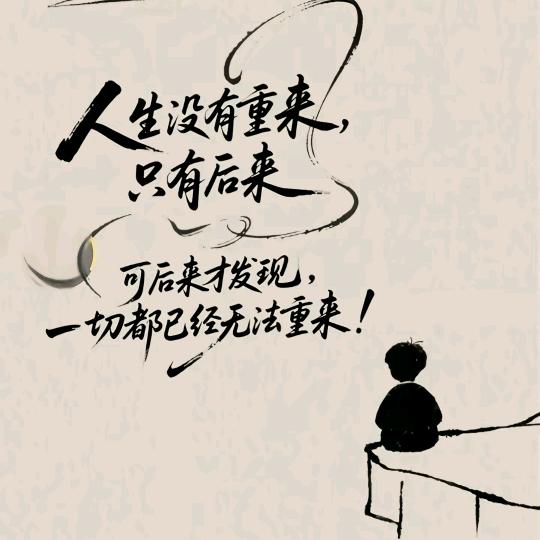 人生没有重来，
只有后来
可后来才发现，
一切都已经无法重来！